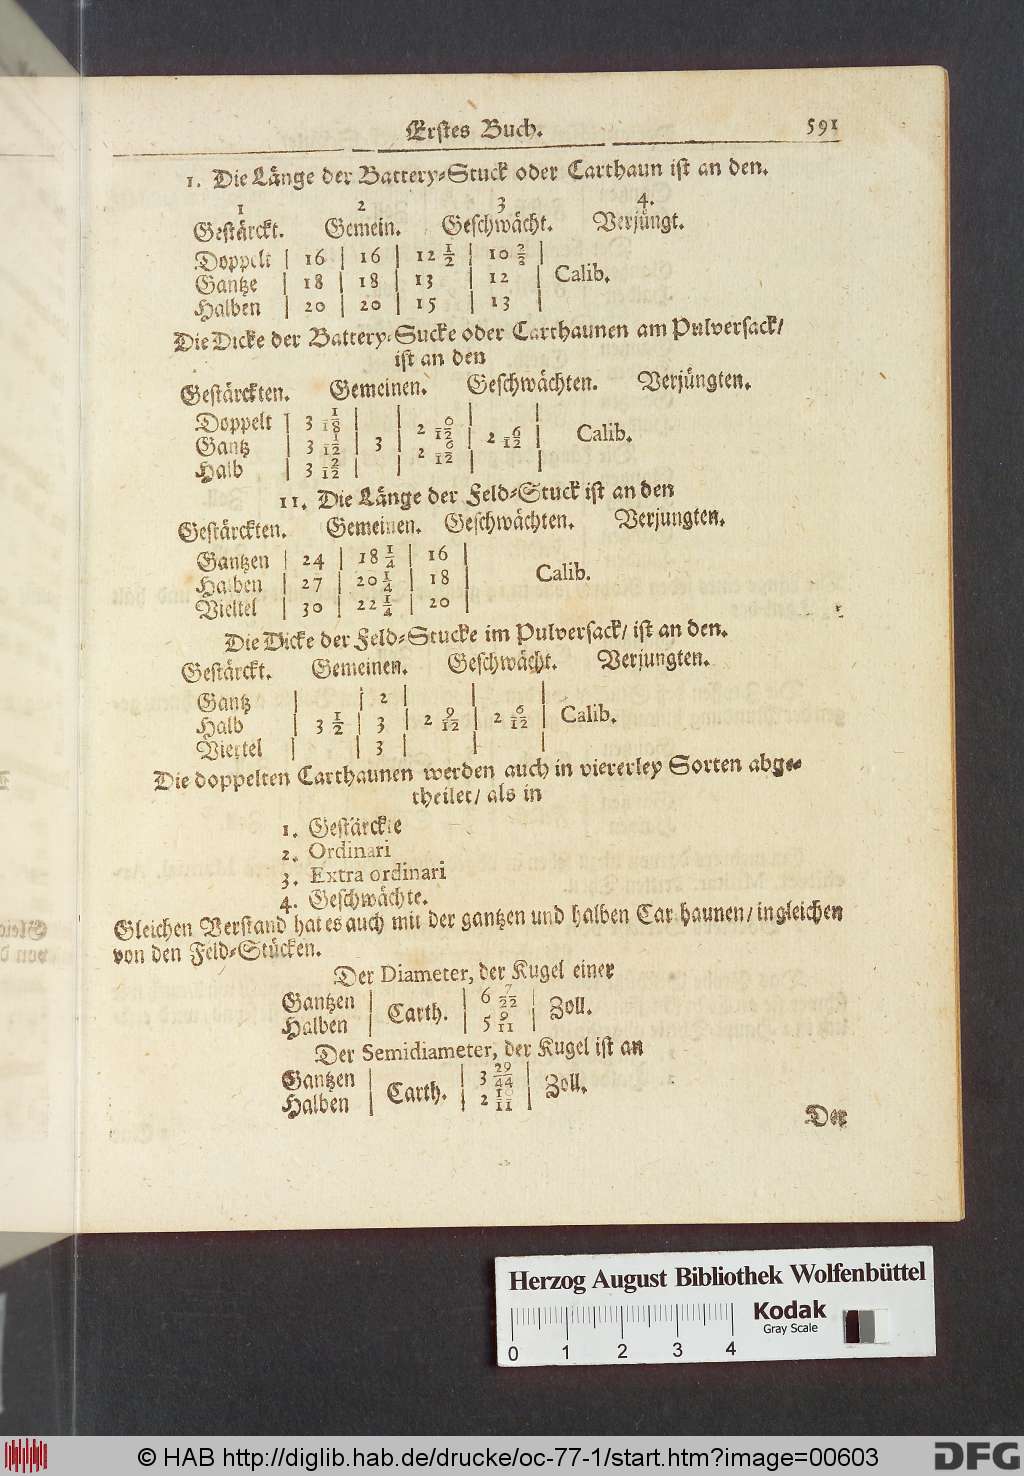 Erstes Buch. 591
1. Die Länge der Battery-Stuck oder Carthaun ist an den.
1 2 3 4.
Gestärckt. Gemein. Geschwächt. Verjüngt.
Doppelt | 16 | 16 | 12 1/2 | 10 2/2 |
Gantze | 18 | 18 | 13 | 12 | Calib.
Halben | 20 | 20 | 15 | 13 |
Die Dicke der Battery-Sucke oder Carthaunen am Pulversack/
ist an den
Gestärckten. Gemeinen. Geschwächten. Verjüngten.
Doppelt | 3 1/18 | | 2 6/12 | |
Gantz | 3 1/12 | 3 | | 2 6/12 | Calib.
Halb | 3 2/12 | | 2 6/12 | |
11. Die Länge der Feld-Stuck ist an den
Gestärckten. Gemeinen. Geschwächten. Verjungten.
Gantzen | 24 | 18 1/4 | 16 |
Halben | 27 | 20 1/4 | 18 | Calib.
Viertel | 30 | 22 1/4 | 20 |
Die Dicke der Feld-Stucke im Pulversack/ ist an den.
Gestärckt. Gemeinen. Geschwächt. Verjungten.
Gantz | | 2 | | |
Halb | 3 1/2 | 3 | 2 9/12 | 2 6/12 | Calib.
Viertel | | 3 | | |
Die doppelten Carthaunen werden auch in viererley Sorten abge-
theilet/ als in
1. Gestärckte
2. Ordinari
3. Extra ordinari
4. Geschwächte.
Gleichen Verstand hat es auch mit der gantzen und halben Carthaunen/ ingleichen
von den Feld-Stücken.
Der Diameter, der Kugel einer
Gantzen | Carth. | 6 7/22 | Zoll.
Halben | | 5 9/11 |
Der Semidiameter, der Kugel ist an
Gantzen | Carth. | 3 29/44 | Zoll.
Halben | | 2 10/11 |
Der
Herzog August Bibliothek Wolfenbüttel
Kodak
Gray Scale
0 1 2 3 4
© HAB http://diglib.hab.de/drucke/oc-77-1/start.htm?image=00603
DFG